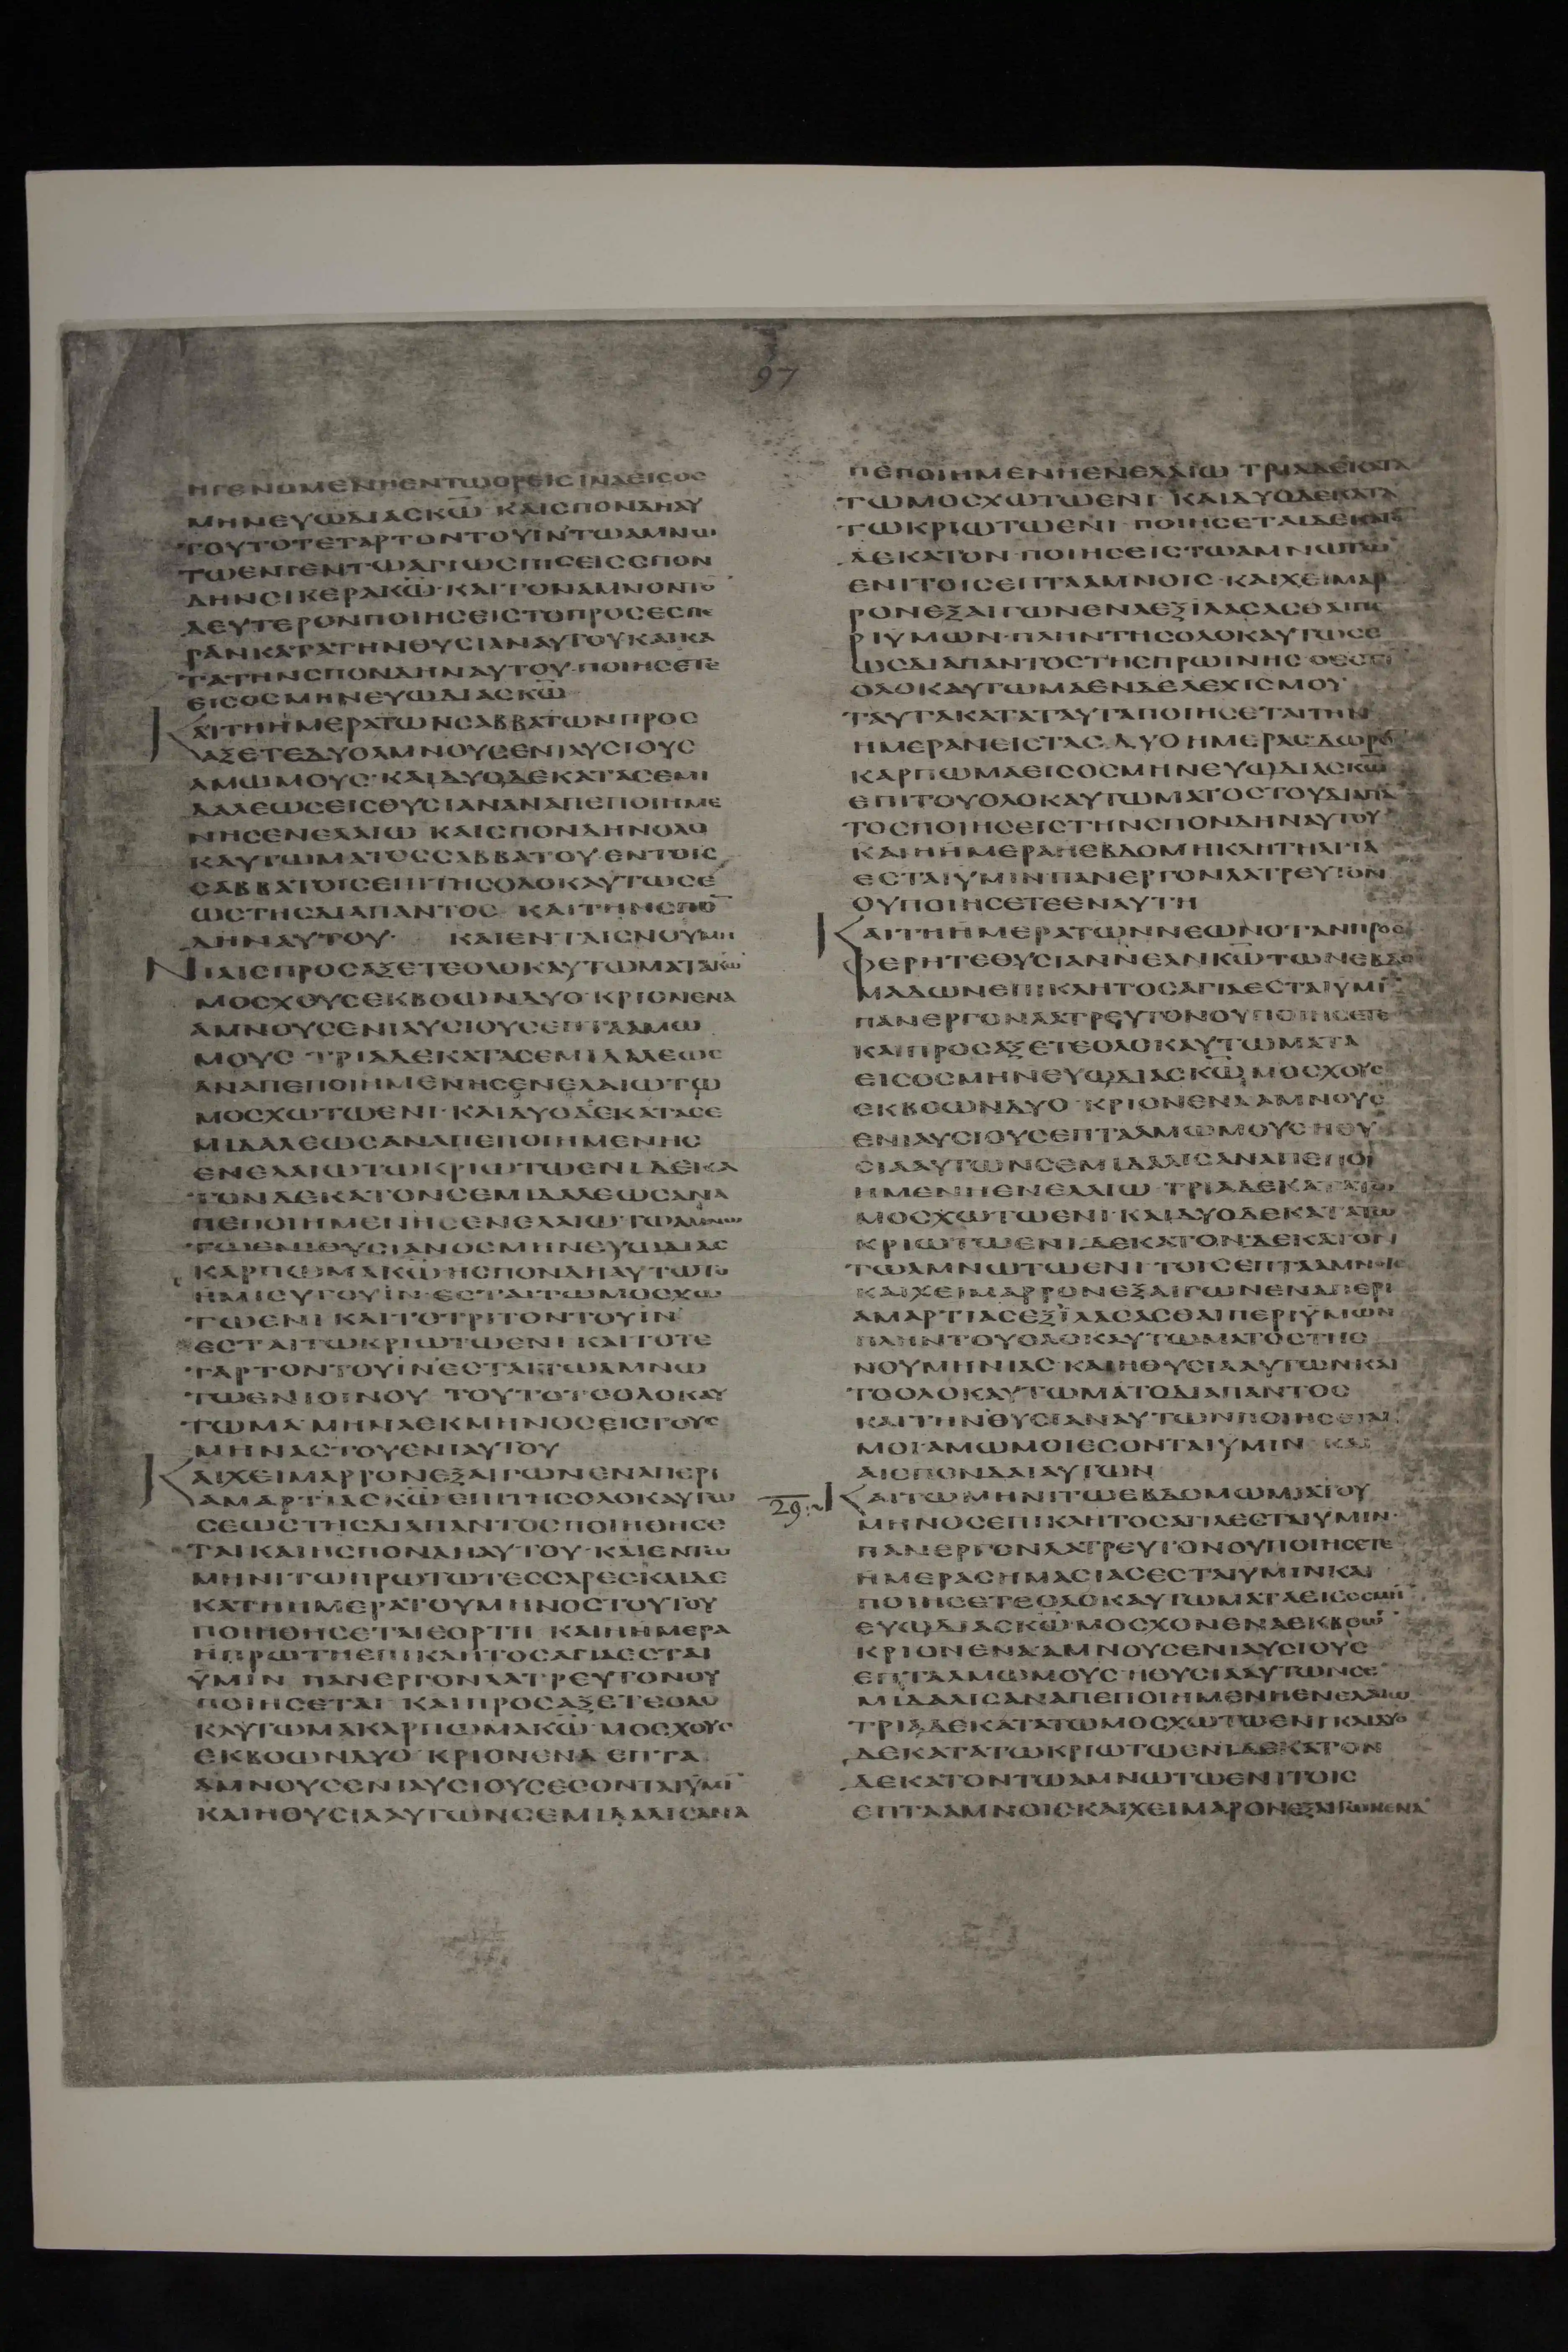 97
ΗΓΕΝΟΜΕΝΗΕΝΤΩΟΡΕΙCΙΝΑΕΙCΟC
ΜΗΝΕΥΩΔΙΑCΚΩ ΚΑΙCΠΟΝΔΗΑΥ
ΤΟΥΤΟΤΕΤΑΡΤΟΝΤΟΥΪΝΤΩΑΜΝΩ
ΤΩΕΝΙΕΝΤΩΑΓΙΩCΠΙCΕΙCCΠΟΝ
ΔΗΝCΙΚΕΡΑΚΩ·ΚΑΙΤΟΝΑΜΝΟΝΤΟ
ΔΕΥΤΕΡΟΝΠΟΙΗCΕΙCΤΟΠΡΟCΕCΠΕ
ΡΑΝΚΑΤΑΤΗΝΘΥCΙΑΝΑΥΤΟΥΚΑΙΚΑ
ΤΑΤΗΝCΠΟΝΔΗΝΑΥΤΟΥ·ΠΟΙΗCΕΤΕ
ΕΙCΟCΜΗΝΕΥΩΔΙΑCΚΩ
ΚΑΙΤΗΗΜΕΡΑΤΩΝCΑΒΒΑΤΩΝΠΡΟC
ΑΞΕΤΕΔΥΟΑΜΝΟΥCΕΝΙΑΥCΙΟΥC
ΑΜΩΜΟΥC·ΚΑΙΔΥΟΔΕΚΑΤΑCΕΜΙ
ΔΑΛΕΩCΕΙCΘΥCΙΑΝΑΝΑΠΕΠΟΙΗΜΕ
ΝΗCΕΝΕΛΑΙΩ ΚΑΙCΠΟΝΔΗΝΟΛΟ
ΚΑΥΤΩΜΑΤΟCCΑΒΒΑΤΟΥ·ΕΝΤΟΙC
CΑΒΒΑΤΟΙCΕΠΙΤΗCΟΛΟΚΑΥΤΩCΕ
ΩCΤΗCΔΙΑΠΑΝΤΟC· ΚΑΙΤΗΝCΠΟ
ΔΗΝΑΥΤΟΥ· ΚΑΙΕΝΤΑΙCΝΟΥΜΗ
ΝΙΑΙCΠΡΟCΑΞΕΤΕΟΛΟΚΑΥΤΩΜΑΤΑΚΩ
ΜΟCΧΟΥCΕΚΒΟΩΝΔΥΟ·ΚΡΙΟΝΕΝΑ
ΑΜΝΟΥCΕΝΙΑΥCΙΟΥCΕΠΤΑΑΜΩ
ΜΟΥC ΤΡΙΑΔΕΚΑΤΑCΕΜΙΔΑΛΕΩC
ΑΝΑΠΕΠΟΙΗΜΕΝΗCΕΝΕΛΑΙΩΤΩ
ΜΟCΧΩΤΩΕΝΙ·ΚΑΙΔΥΟΔΕΚΑΤΑCΕ
ΜΙΔΑΛΕΩCΑΝΑΠΕΠΟΙΗΜΕΝΗC
ΕΝΕΛΑΙΩΤΩΚΡΙΩΤΩΕΝΙΔΕΚΑ
ΤΟΝΔΕΚΑΤΟΝCΕΜΙΔΑΛΕΩCΑΝΑ
ΠΕΠΟΙΗΜΕΝΗCΕΝΕΛΑΙΩΤΩΑΜΝΩ
ΤΩΕΝΙΘΥCΙΑΝΟCΜΗΝΕΥΩΔΙΑC
ΚΑΡΠΩΜΑΚΩ·ΗCΠΟΝΔΗΑΥΤΩΤΟ
ΗΜΙCΥΤΟΥΪΝ·ΕCΤΑΙΤΩΜΟCΧΩ
ΤΩΕΝΙ ΚΑΙΤΟΤΡΙΤΟΝΤΟΥΪΝ
ΕCΤΑΙΤΩΚΡΙΩΤΩΕΝΙ ΚΑΙΤΟΤΕ
ΤΑΡΤΟΝΤΟΥΪΝΕCΤΑΙΤΩΑΜΝΩ
ΤΩΕΝΙΟΙΝΟΥ ΤΟΥΤΟΤΟΟΛΟΚΑΥ
ΤΩΜΑ·ΜΗΝΑΕΚΜΗΝΟCΕΙCΤΟΥC
ΜΗΝΑCΤΟΥΕΝΙΑΥΤΟΥ
ΚΑΙΧΕΙΜΑΡΡΟΝΕΞΑΙΓΩΝΕΝΑΠΕΡΙ
ΑΜΑΡΤΙΑCΚΩ·ΕΠΙΤΗCΟΛΟΚΑΥΤΩ
CΕΩCΤΗCΔΙΑΠΑΝΤΟCΠΟΙΗΘΗCΕ
ΤΑΙΚΑΙΗCΠΟΝΔΗΑΥΤΟΥ·ΚΑΙΕΝΤΩ
ΜΗΝΙΤΩΠΡΩΤΩΤΕCCΑΡΕCΚΑΙΔΕ
ΚΑΤΗΗΜΕΡΑΤΟΥΜΗΝΟCΤΟΥΤΟΥ
ΠΟΙΗΘΗCΕΤΑΙΕΟΡΤΗ ΚΑΙΗΗΜΕΡΑ
ΗΠΡΩΤΗΕΠΙΚΛΗΤΟCΑΓΙΑΕCΤΑΙ
ΫΜΙΝ ΠΑΝΕΡΓΟΝΛΑΤΡΕΥΤΟΝΟΥ
ΠΟΙΗCΕΤΑΙ ΚΑΙΠΡΟCΑΞΕΤΕΟΛΟ
ΚΑΥΤΩΜΑΚΑΡΠΩΜΑΚΩ·ΜΟCΧΟΥC
ΕΚΒΟΩΝΔΥΟ·ΚΡΙΟΝΕΝΑ ΕΠΤΑ
ΑΜΝΟΥCΕΝΙΑΥCΙΟΥCΕCΟΝΤΑΙΫΜΙ
ΚΑΙΗΘΥCΙΑΑΥΤΩΝCΕΜΙΔΑΛΙCΑΝΑ
ΠΕΠΟΙΗΜΕΝΗΕΝΕΛΑΙΩ ΤΡΙΑΔΕΚΑΤΑ
ΤΩΜΟCΧΩΤΩΕΝΙ ΚΑΙΔΥΟΔΕΚΑΤΑ
ΤΩΚΡΙΩΤΩΕΝΙ ΠΟΙΗCΕΤΑΙΔΕΚΑΤΟ
ΔΕΚΑΤΟΝ·ΠΟΙΗCΕΙCΤΩΑΜΝΩΤΩ
ΕΝΙΤΟΙCΕΠΤΑΑΜΝΟΙC·ΚΑΙΧΕΙΜΑΡ
ΡΟΝΕΞΑΙΓΩΝΕΝΑΕΞΙΛΑCΑCΘΑΙΠΕ
ΡΙΥΜΩΝ·ΠΛΗΝΤΗCΟΛΟΚΑΥΤΩCΕ
ΩCΔΙΑΠΑΝΤΟCΤΗCΠΡΩΙΝΗC
ΟΛΟΚΑΥΤΩΜΑΕΝΔΕΛΕΧΙCΜΟΥ
ΤΑΥΤΑΚΑΤΑΤΑΥΤΑΠΟΙΗCΕΤΑΙΤΗΝ
ΗΜΕΡΑΝΕΙCΤΑC ΔΥΟΗΜΕΡΑC·ΔΩΡΟ
ΚΑΡΠΩΜΑΕΙCΟCΜΗΝΕΥΩΔΙΑCΚΩ
ΕΠΙΤΟΥΟΛΟΚΑΥΤΩΜΑΤΟCΤΟΥΔΙΑΠΑ
ΤΟCΠΟΙΗCΕΙCΤΗΝCΠΟΝΔΗΝΑΥΤΟΥ
ΚΑΙΗΗΜΕΡΑΗΕΒΔΟΜΗΚΛΗΤΗΑΓΙΑ
ΕCΤΑΙΥΜΙΝ·ΠΑΝΕΡΓΟΝΛΑΤΡΕΥΤΟΝ
ΟΥΠΟΙΗCΕΤΕΕΝΑΥΤΗ
ΚΑΙΤΗΗΜΕΡΑΤΩΝΝΕΩΝΟΤΑΝΠΡΟC
ΦΕΡΗΤΕΘΥCΙΑΝΝΕΑΝΚΩΤΩΝΕΒΔΟ
ΜΑΔΩΝΕΠΙΚΛΗΤΟCΑΓΙΑΕCΤΑΙΥΜΙ
ΠΑΝΕΡΓΟΝΛΑΤΡΕΥΤΟΝΟΥΠΟΙΗCΕΤΕ
ΚΑΙΠΡΟCΑΞΕΤΕΟΛΟΚΑΥΤΩΜΑΤΑ
ΕΙCΟCΜΗΝΕΥΩΔΙΑCΚΩ ΜΟCΧΟΥC
ΕΚΒΟΩΝΔΥΟ·ΚΡΙΟΝΕΝΑΑΜΝΟΥC
ΕΝΙΑΥCΙΟΥCΕΠΤΑΑΜΩΜΟΥCΗΘΥ
CΙΑΑΥΤΩΝCΕΜΙΔΑΛΙCΑΝΑΠΕΠΟΙ
ΗΜΕΝΗΕΝΕΛΑΙΩ ΤΡΙΑΔΕΚΑΤΑΤΩ
ΜΟCΧΩΤΩΕΝΙ·ΚΑΙΔΥΟΔΕΚΑΤΑΤΩ
ΚΡΙΩΤΩΕΝΙ·ΔΕΚΑΤΟΝΔΕΚΑΤΟΝ
ΤΩΑΜΝΩΤΩΕΝΙ ΤΟΙCΕΠΤΑΑΜΝΟΙC
ΚΑΙΧΕΙΜΑΡΡΟΝΕΞΑΙΓΩΝΕΝΑΠΕΡΙ
ΑΜΑΡΤΙΑCΕΞΪΛΑCΑCΘΑΙΠΕΡΙΫΜΩΝ
ΠΛΗΝΤΟΥΟΛΟΚΑΥΤΩΜΑΤΟCΤΗC
ΝΟΥΜΗΝΙΑC·ΚΑΙΗΘΥCΙΑΑΥΤΩΝΚΑΙ
ΤΟΟΛΟΚΑΥΤΩΜΑΤΟΔΙΑΠΑΝΤΟC
ΚΑΙΤΗΝΘΥCΙΑΝΑΥΤΩΝΠΟΙΗCΕΤΑΙ
ΜΟΙΑΜΩΜΟΙΕCΟΝΤΑΙΫΜΙΝ ΚΑΙ
ΑΙCΠΟΝΔΑΙΑΥΤΩΝ
29 ΚΑΙΤΩΜΗΝΙΤΩΕΒΔΟΜΩΜΙΑΤΟΥ
ΜΗΝΟCΕΠΙΚΛΗΤΟCΑΓΙΑΕCΤΑΙΥΜΙΝ·
ΠΑΝΕΡΓΟΝΛΑΤΡΕΥΤΟΝΟΥΠΟΙΗCΕΤΕ
ΗΜΕΡΑCΗΜΑCΙΑCΕCΤΑΙΥΜΙΝΚΑΙ
ΠΟΙΗCΕΤΕΟΛΟΚΑΥΤΩΜΑΤΑΕΙCΟCΜΗ
ΕΥΩΔΙΑCΚΩ·ΜΟCΧΟΝΕΝΑΕΚΒΟΩ
ΚΡΙΟΝΕΝΑΑΜΝΟΥCΕΝΙΑΥCΙΟΥC
ΕΠΤΑΑΜΩΜΟΥC·ΗΘΥCΙΑΑΥΤΩΝCΕ
ΜΙΔΑΛΙCΑΝΑΠΕΠΟΙΗΜΕΝΗΕΝΕΛΑΙΩ
ΤΡΙΑΔΕΚΑΤΑΤΩΜΟCΧΩΤΩΕΝΙΚΑΙΔΥΟ
ΔΕΚΑΤΑΤΩΚΡΙΩΤΩΕΝΙΔΕΚΑΤΟΝ
ΔΕΚΑΤΟΝΤΩΑΜΝΩΤΩΕΝΙΤΟΙC
ΕΠΤΑΑΜΝΟΙCΚΑΙΧΕΙΜΑΡΟΝΕΞΑΙΓΩΝΕΝΑ